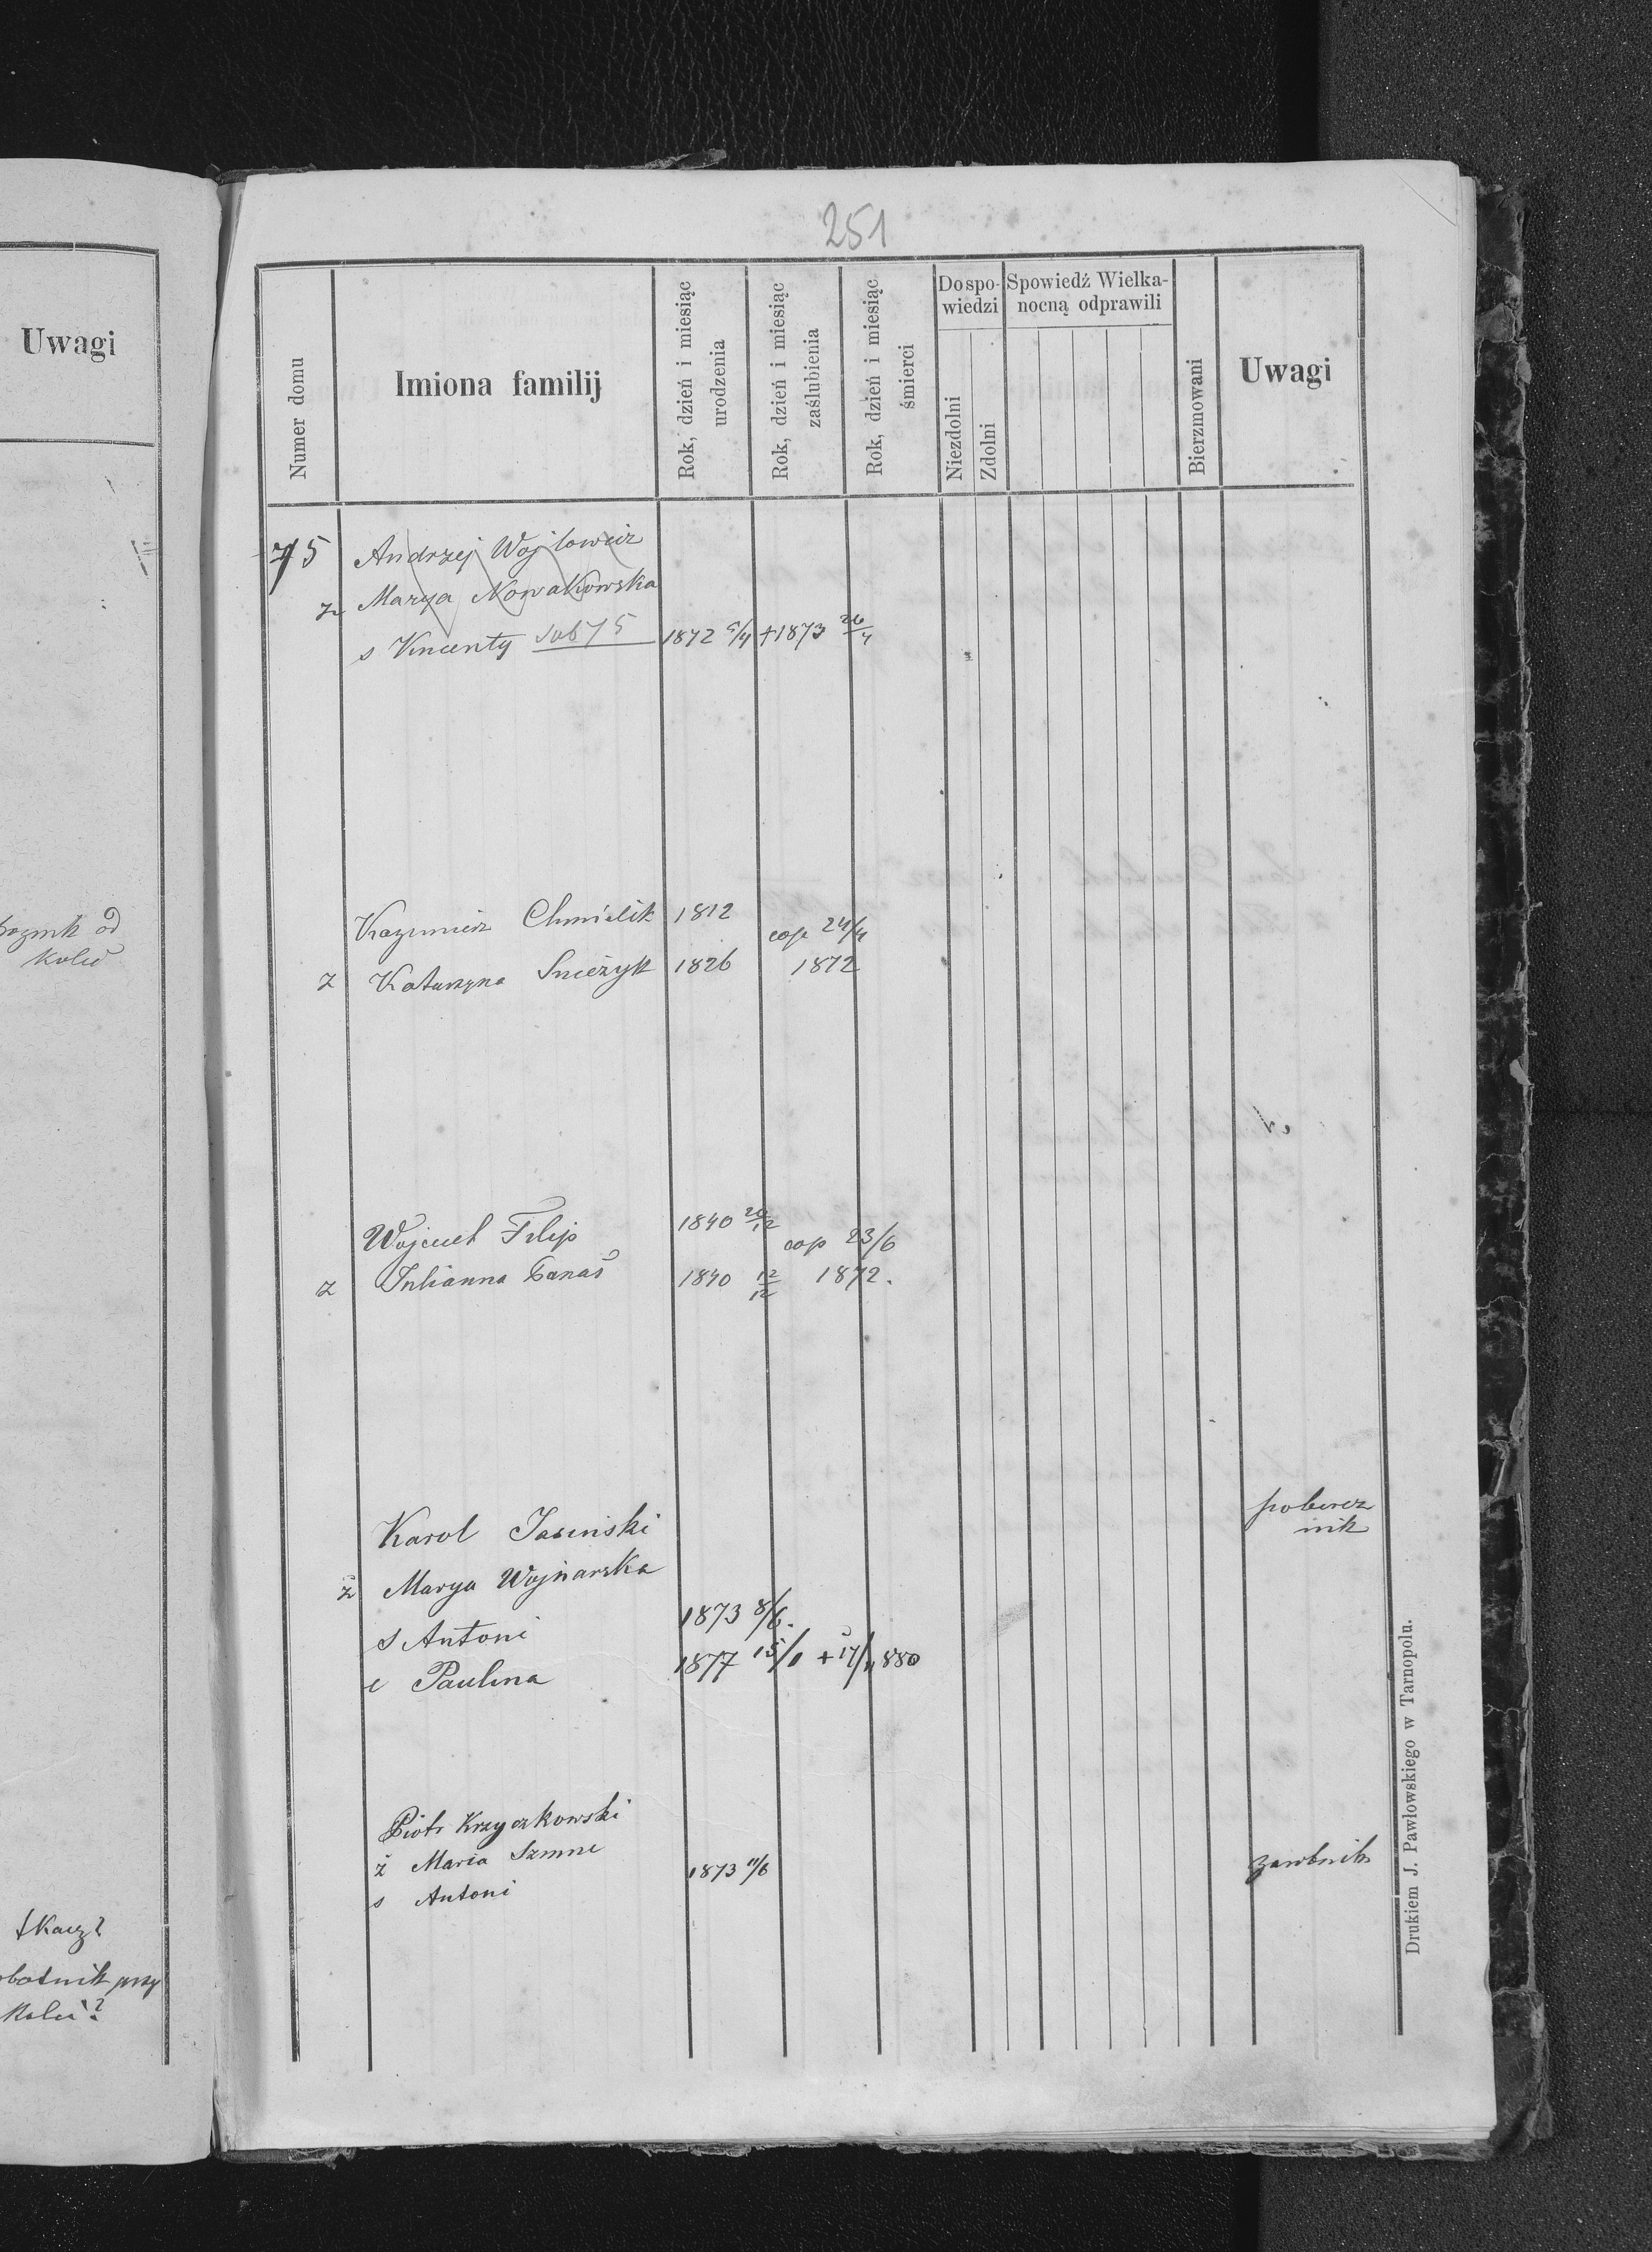 Uwagi
od
kolei
tkacz?
przy
kolei?
251
Numer domu
Imiona familij
Rok, dzień i miesiąc urodzenia
Rok, dzień i miesiąc zaślubienia
Rok, dzień i miesiąc śmierci
Do spo-
wiedzi
Niezdolni
Zdolni
Spowiedź Wielka-
nocną odprawili
Bierzmowani
Uwagi
75 Andrzej Wojtowicz
ż Marya Nowakowska
s Vincenty sub 75 1872 5/4 +1873 26/4
Kazimierz Chmielik 1812 cop 24/4
ż Katarzyna Snieżyk 1826 1872
Wojciech Filip 1840 26/12 cop 23/6
ż Julianna Banaś 1840 12/12 1872.
Karol Jasinski poborcz
nik
ż Marya Wojnarska
s Antoni 1873 8/6.
c Paulina 1877 15/1 + 17/11 880
Piotr Krzyczkowski
ż Maria zarobnik
s Antoni 1873 11/6
Drukiem J. Pawłowskiego w Tarnopolu.